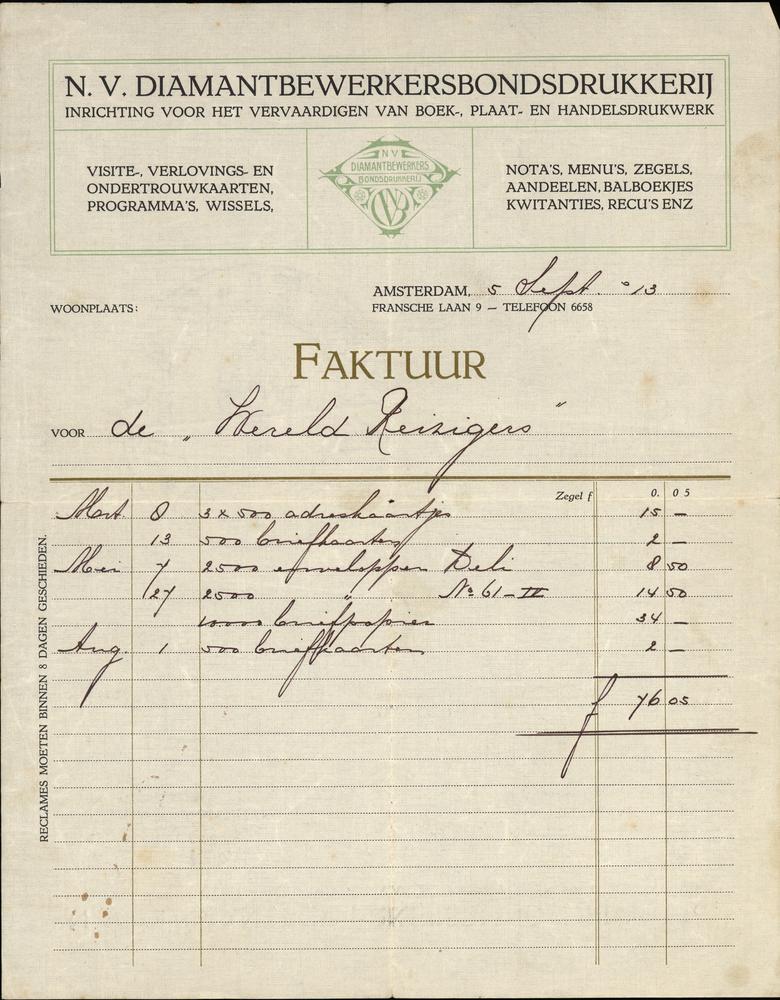 N. V. DIAMANTBEWERKERSBONDSDRUKKERIJ
INRICHTING VOOR HET VERVAARDIGEN VAN BOEK-, PLAAT- EN HANDELSDRUKWERK
VISITE-, VERLOVINGS- EN
ONDERTROUWKAARTEN,
PROGRAMMA'S, WISSELS,
N V
DIAMANTBEWERKERS
BONDSDRUKKERIJ
NOTA'S, MENU'S, ZEGELS,
AANDEELEN, BALBOEKJES
KWITANTIES, RECU'S ENZ
AMSTERDAM, 5 Sept. 13
WOONPLAATS:
FRANSCHE LAAN 9 — TELEFOON 6658
FAKTUUR
VOOR de „Wereld Reizigers"
Zegel f 0. 05
Mrt 8 3 x 500 adreskaartjes 15 —
13 500 briefkaarten 2 —
Mei 7 2500 enveloppen Deli 8 50
27 2500 " No 61-IV 14 50
10000 briefpapier 34 —
Aug. 1 500 briefkaarten 2 —
f 76 05
RECLAMES MOETEN BINNEN 8 DAGEN GESCHIEDEN.